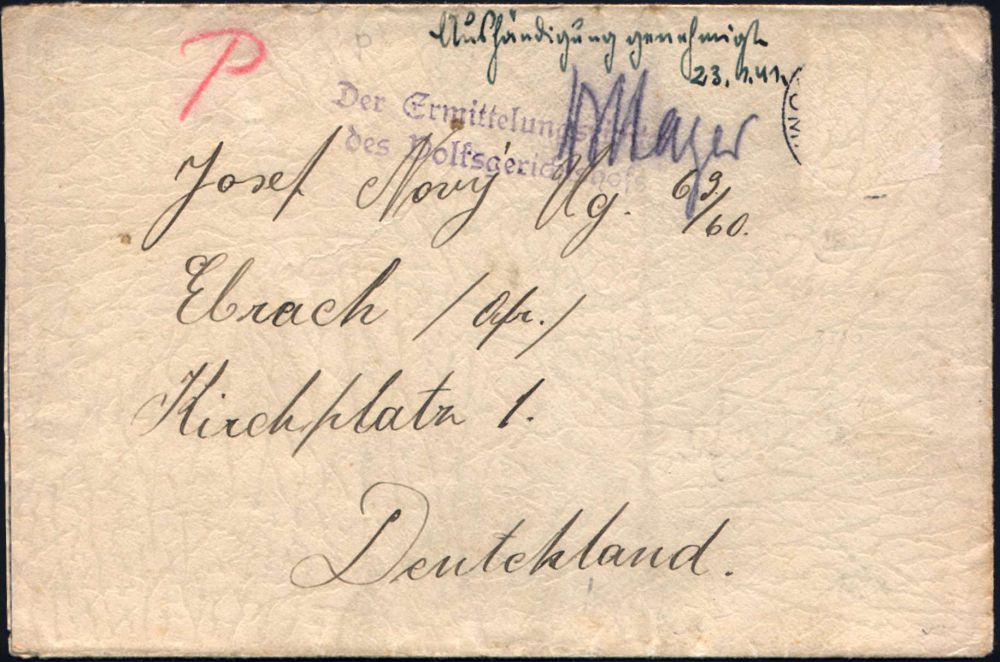 P
Aushändigung genehmigt
23. 1. 41.
Der Ermittelungs
des Volksgerichtshofs
Mayer
Josef Nový Ug. 69/60.
Ebrach / Ofr. /
Kirchplatz 1.
Deutckland.